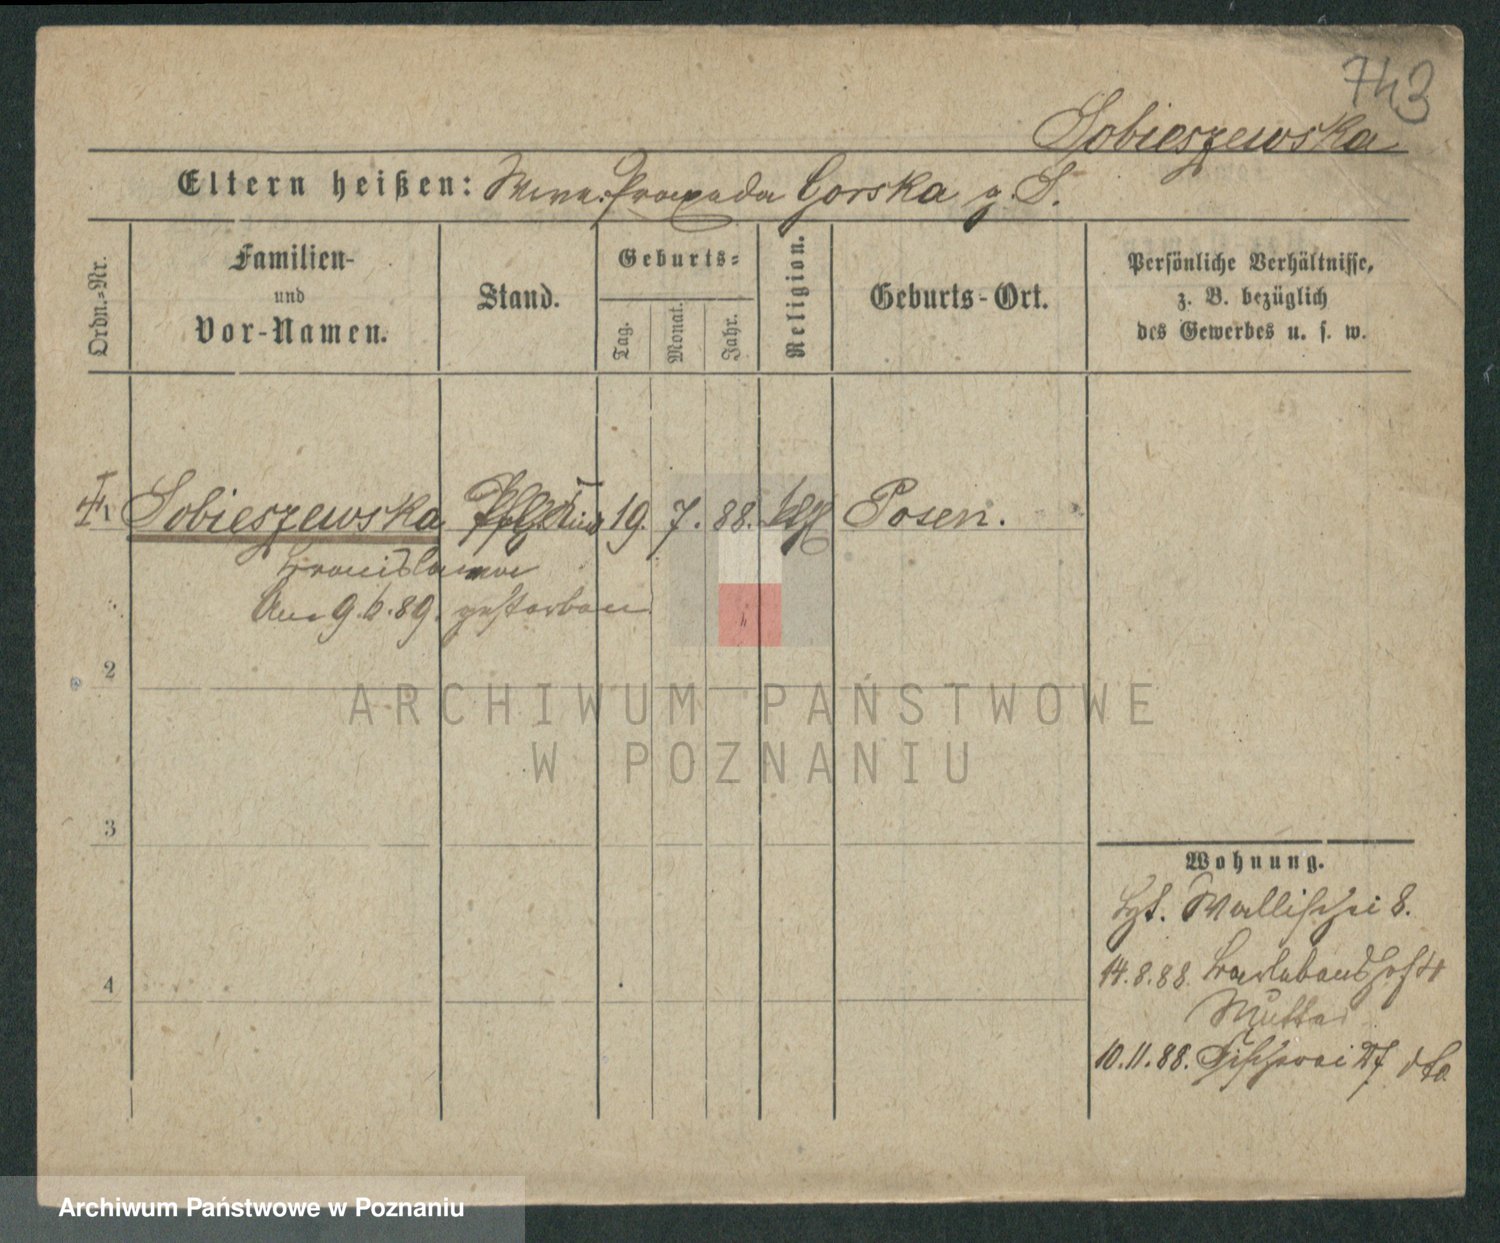 743
Sobieszewska
Eltern heißen: Wwe. Praxeda Gorska g. S.
Ordn.-Nr.
Familien-
und
Vor-Namen.
Stand.
Geburts-
Tag.
Monat.
Jahr.
Religion.
Geburts-Ort.
Persönliche Verhältnisse,
z. B. bezüglich
des Gewerbes u. s. w.
1 Sobieszewska Pflg. Kind 19. 7. 88. kth Posen.
Bronislawa
Am 9.6.89. gestorben
2
ARCHIWUM PAŃSTWOWE
W POZNANIU
3
Wohnung.
Wallischei 8.
4
14.8.88. 4
Mutter
10.11.88. Fischerei dto
Archiwum Państwowe w Poznaniu